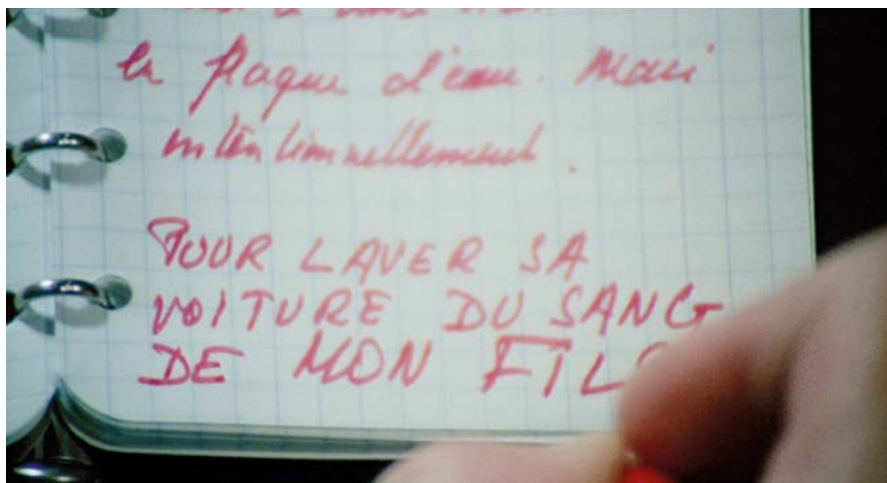 la flaque d'eau. Mais
intentionnellement.
POUR LAVER SA
VOITURE DU SANG
DE MON FILS